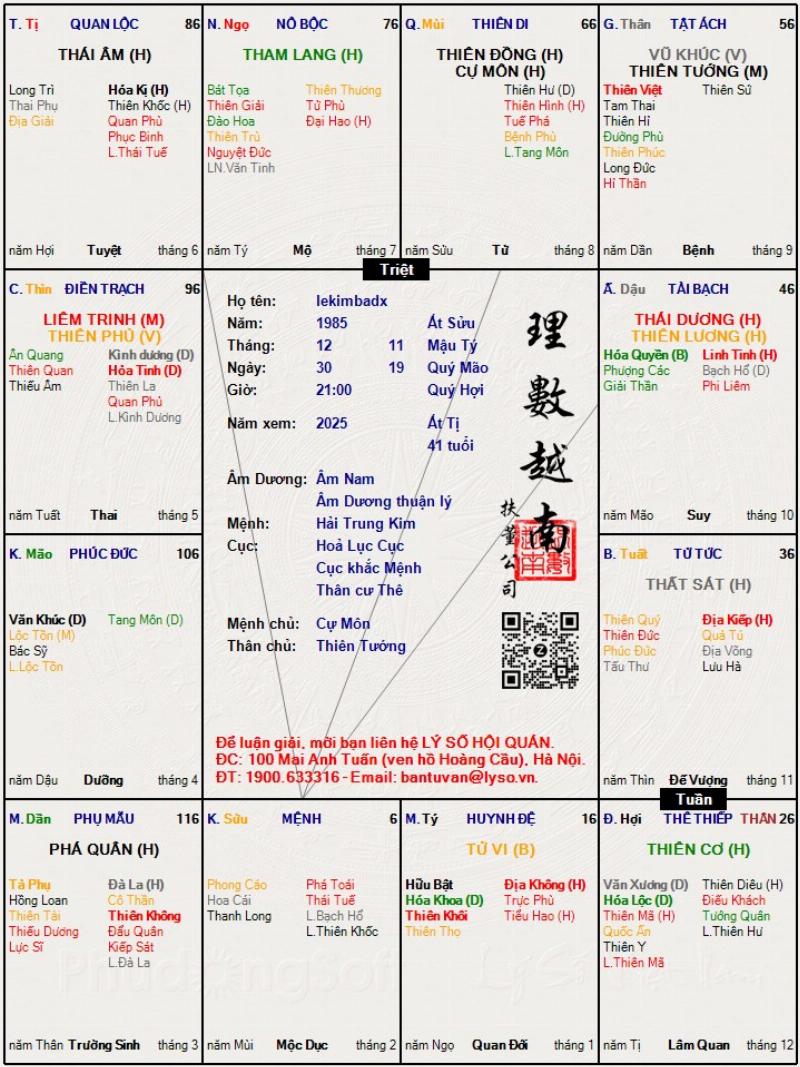 T. Tị QUAN LỘC 86
THÁI ÂM (H)
Long Trì Hóa Kị (H)
Thai Phụ Thiên Khốc (H)
Địa Giải Quan Phù
Phục Binh
L.Thái Tuế
năm Hợi Tuyệt tháng 6
N. Ngọ NÔ BỘC 76
THAM LANG (H)
Bát Tọa Thiên Thương
Thiên Giải Tử Phù
Đào Hoa Đại Hao (H)
Thiên Trù
Nguyệt Đức
LN.Văn Tinh
năm Tý Mộ tháng 7
Q. Mùi THIÊN DI 66
THIÊN ĐỒNG (H)
CỰ MÔN (H)
Thiên Hư (D)
Thiên Hình (H)
Tuế Phá
Bệnh Phù
L.Tang Môn
năm Sửu Tử tháng 8
G. Thân TẬT ÁCH 56
VŨ KHÚC (V)
THIÊN TƯỚNG (M)
Thiên Việt Thiên Sứ
Tam Thai
Thiên Hỉ
Đường Phù
Thiên Phúc
Long Đức
Hỉ Thần
năm Dần Bệnh tháng 9
Triệt
C. Thìn ĐIỀN TRẠCH 96
LIÊM TRINH (M)
THIÊN PHỦ (V)
Ân Quang Kình dương (D)
Thiên Quan Hỏa Tinh (D)
Thiếu Âm Thiên La
Quan Phủ
L.Kình Dương
năm Tuất Thai tháng 5
Họ tên: lekimbadx
Năm: 1985 Ất Sửu
Tháng: 12 11 Mậu Tý
Ngày: 30 19 Quý Mão
Giờ: 21:00 Quý Hợi
Năm xem: 2025 Ất Tị
41 tuổi
Âm Dương: Âm Nam
Âm Dương thuận lý
Mệnh: Hải Trung Kim
Cục: Hoả Lục Cục
Cục khắc Mệnh
Thân cư Thê
Mệnh chủ: Cự Môn
Thân chủ: Thiên Tướng
理數越南
扶董公司
Để luận giải, mời bạn liên hệ LÝ SỐ HỘI QUÁN.
ĐC: 100 Mai Anh Tuấn (ven hồ Hoàng Cầu), Hà Nội.
ĐT: 1900.633316 - Email: bantuvan@lyso.vn.
Ấ. Dậu TÀI BẠCH 46
THÁI DƯƠNG (H)
THIÊN LƯƠNG (H)
Hóa Quyền (B) Linh Tinh (H)
Phượng Các Bạch Hổ (D)
Giải Thần Phi Liêm
năm Mão Suy tháng 10
K. Mão PHÚC ĐỨC 106
Văn Khúc (D) Tang Môn (D)
Lộc Tồn (M)
Bác Sỹ
L.Lộc Tồn
năm Dậu Dưỡng tháng 4
B. Tuất TỬ TỨC 36
THẤT SÁT (H)
Thiên Quý Địa Kiếp (H)
Thiên Đức Quả Tú
Phúc Đức Địa Võng
Tấu Thư Lưu Hà
năm Thìn Đế Vượng tháng 11
Tuần
M. Dần PHỤ MẪU 116
PHÁ QUÂN (H)
Tả Phụ Đà La (H)
Hồng Loan Cô Thần
Thiên Tài Thiên Không
Thiếu Dương Đẩu Quân
Lực Sĩ Kiếp Sát
L.Đà La
năm Thân Trường Sinh tháng 3
K. Sửu MỆNH 6
Phong Cáo Phá Toái
Hoa Cái Thái Tuế
Thanh Long L.Bạch Hổ
L.Thiên Khốc
năm Mùi Mộc Dục tháng 2
M. Tý HUYNH ĐỆ 16
TỬ VI (B)
Hữu Bật Địa Không (H)
Hóa Khoa (D) Trực Phù
Thiên Khôi Tiểu Hao (H)
Thiên Thọ
năm Ngọ Quan Đới tháng 1
Đ. Hợi THÊ THIẾP THÂN 26
THIÊN CƠ (H)
Văn Xương (D) Thiên Diêu (H)
Hóa Lộc (D) Điếu Khách
Thiên Mã (H) Tướng Quân
Quốc Ấn L.Thiên Hư
Thiên Y
L.Thiên Mã
năm Tị Lâm Quan tháng 12